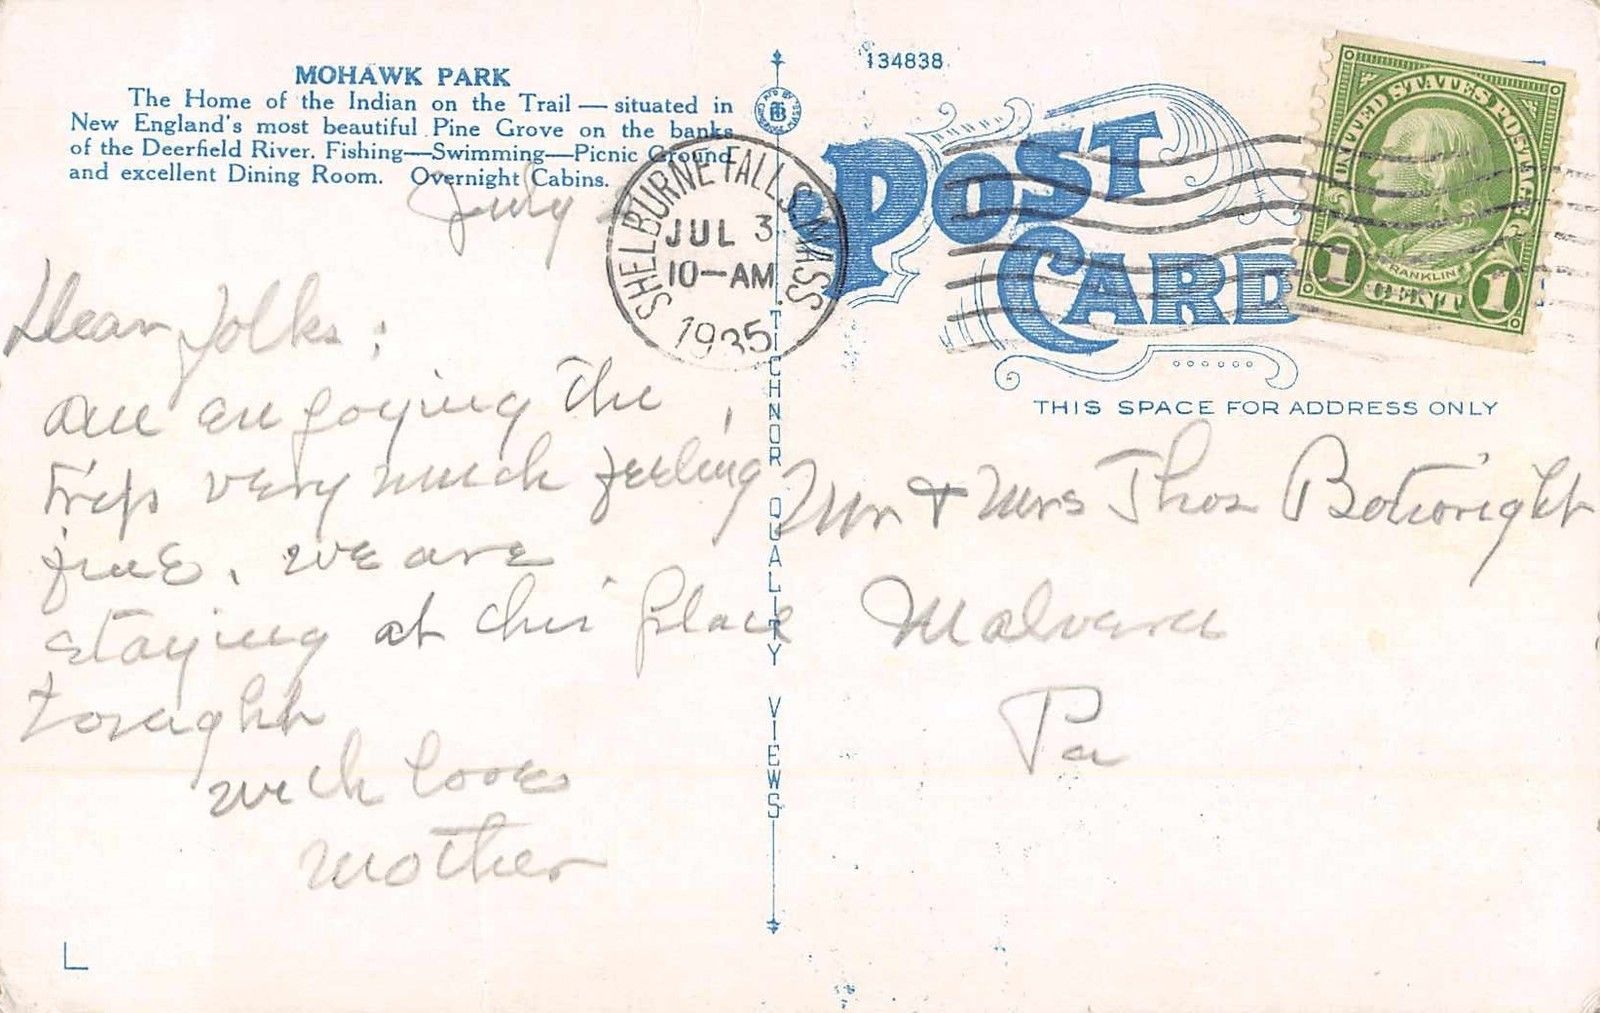 MOHAWK PARK
The Home of the Indian on the Trail — situated in
New England's most beautiful Pine Grove on the banks
of the Deerfield River. Fishing—Swimming—Picnic Ground
and excellent Dining Room. Overnight Cabins.
July
Dear Folks:
are enjoying the
trip very much feeling
fine. we are
staying at this place
tonight
with love
Mother
134838
POST CARD
THIS SPACE FOR ADDRESS ONLY
SHELBURNE FALLS, MASS
JUL 3
10-AM
1935
UNITED STATES POSTAGE
FRANKLIN
1 CENT 1
TICHNOR QUALITY VIEWS
Mr & Mrs Thos Botwright
Malvern
Pa
L